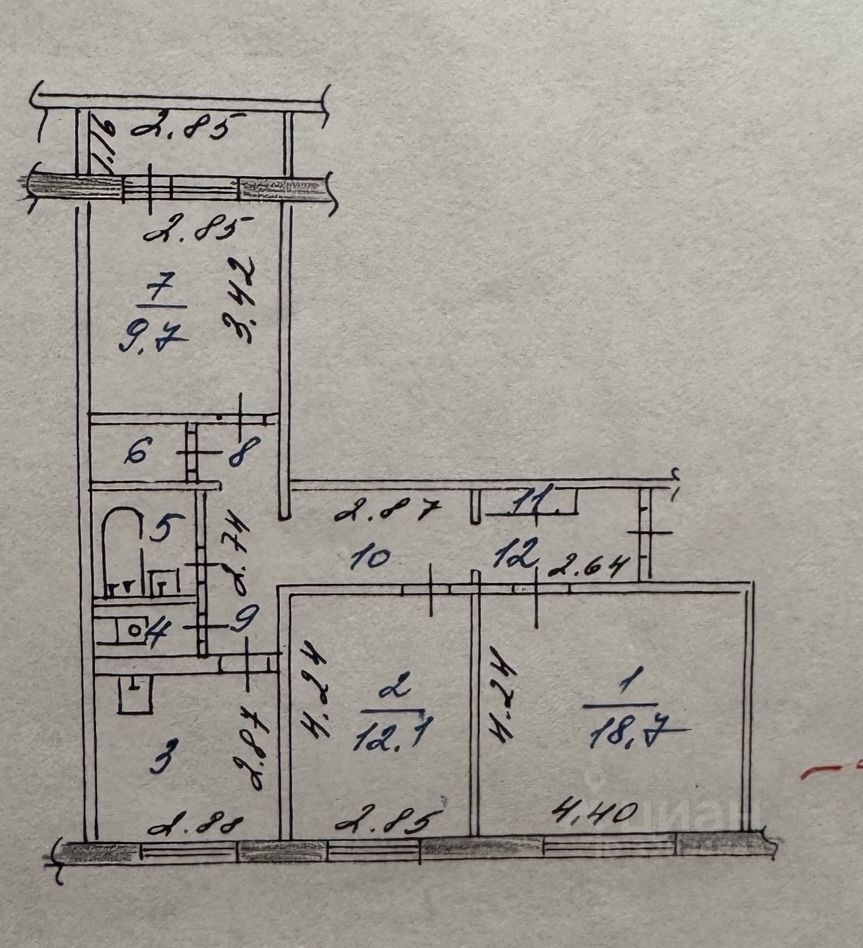 1.16
2.85
2.85
7
9.7
3.42
6
8
5
2.74
2.87
11
10
12
2.64
4
9
3
2.87
2.88
4.24
2
12.1
2.85
4.24
1
18.7
4.40
циан